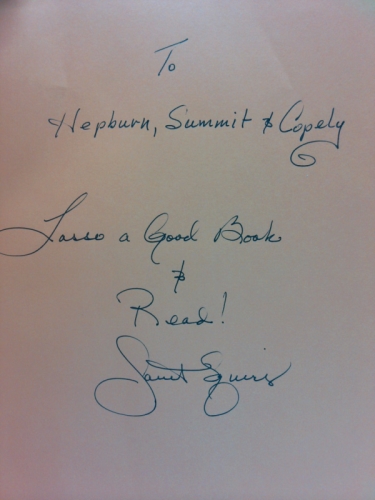 To
Hepburn, Summit & Copely
Lasso a Good Book
&
Read!
Janet Squires